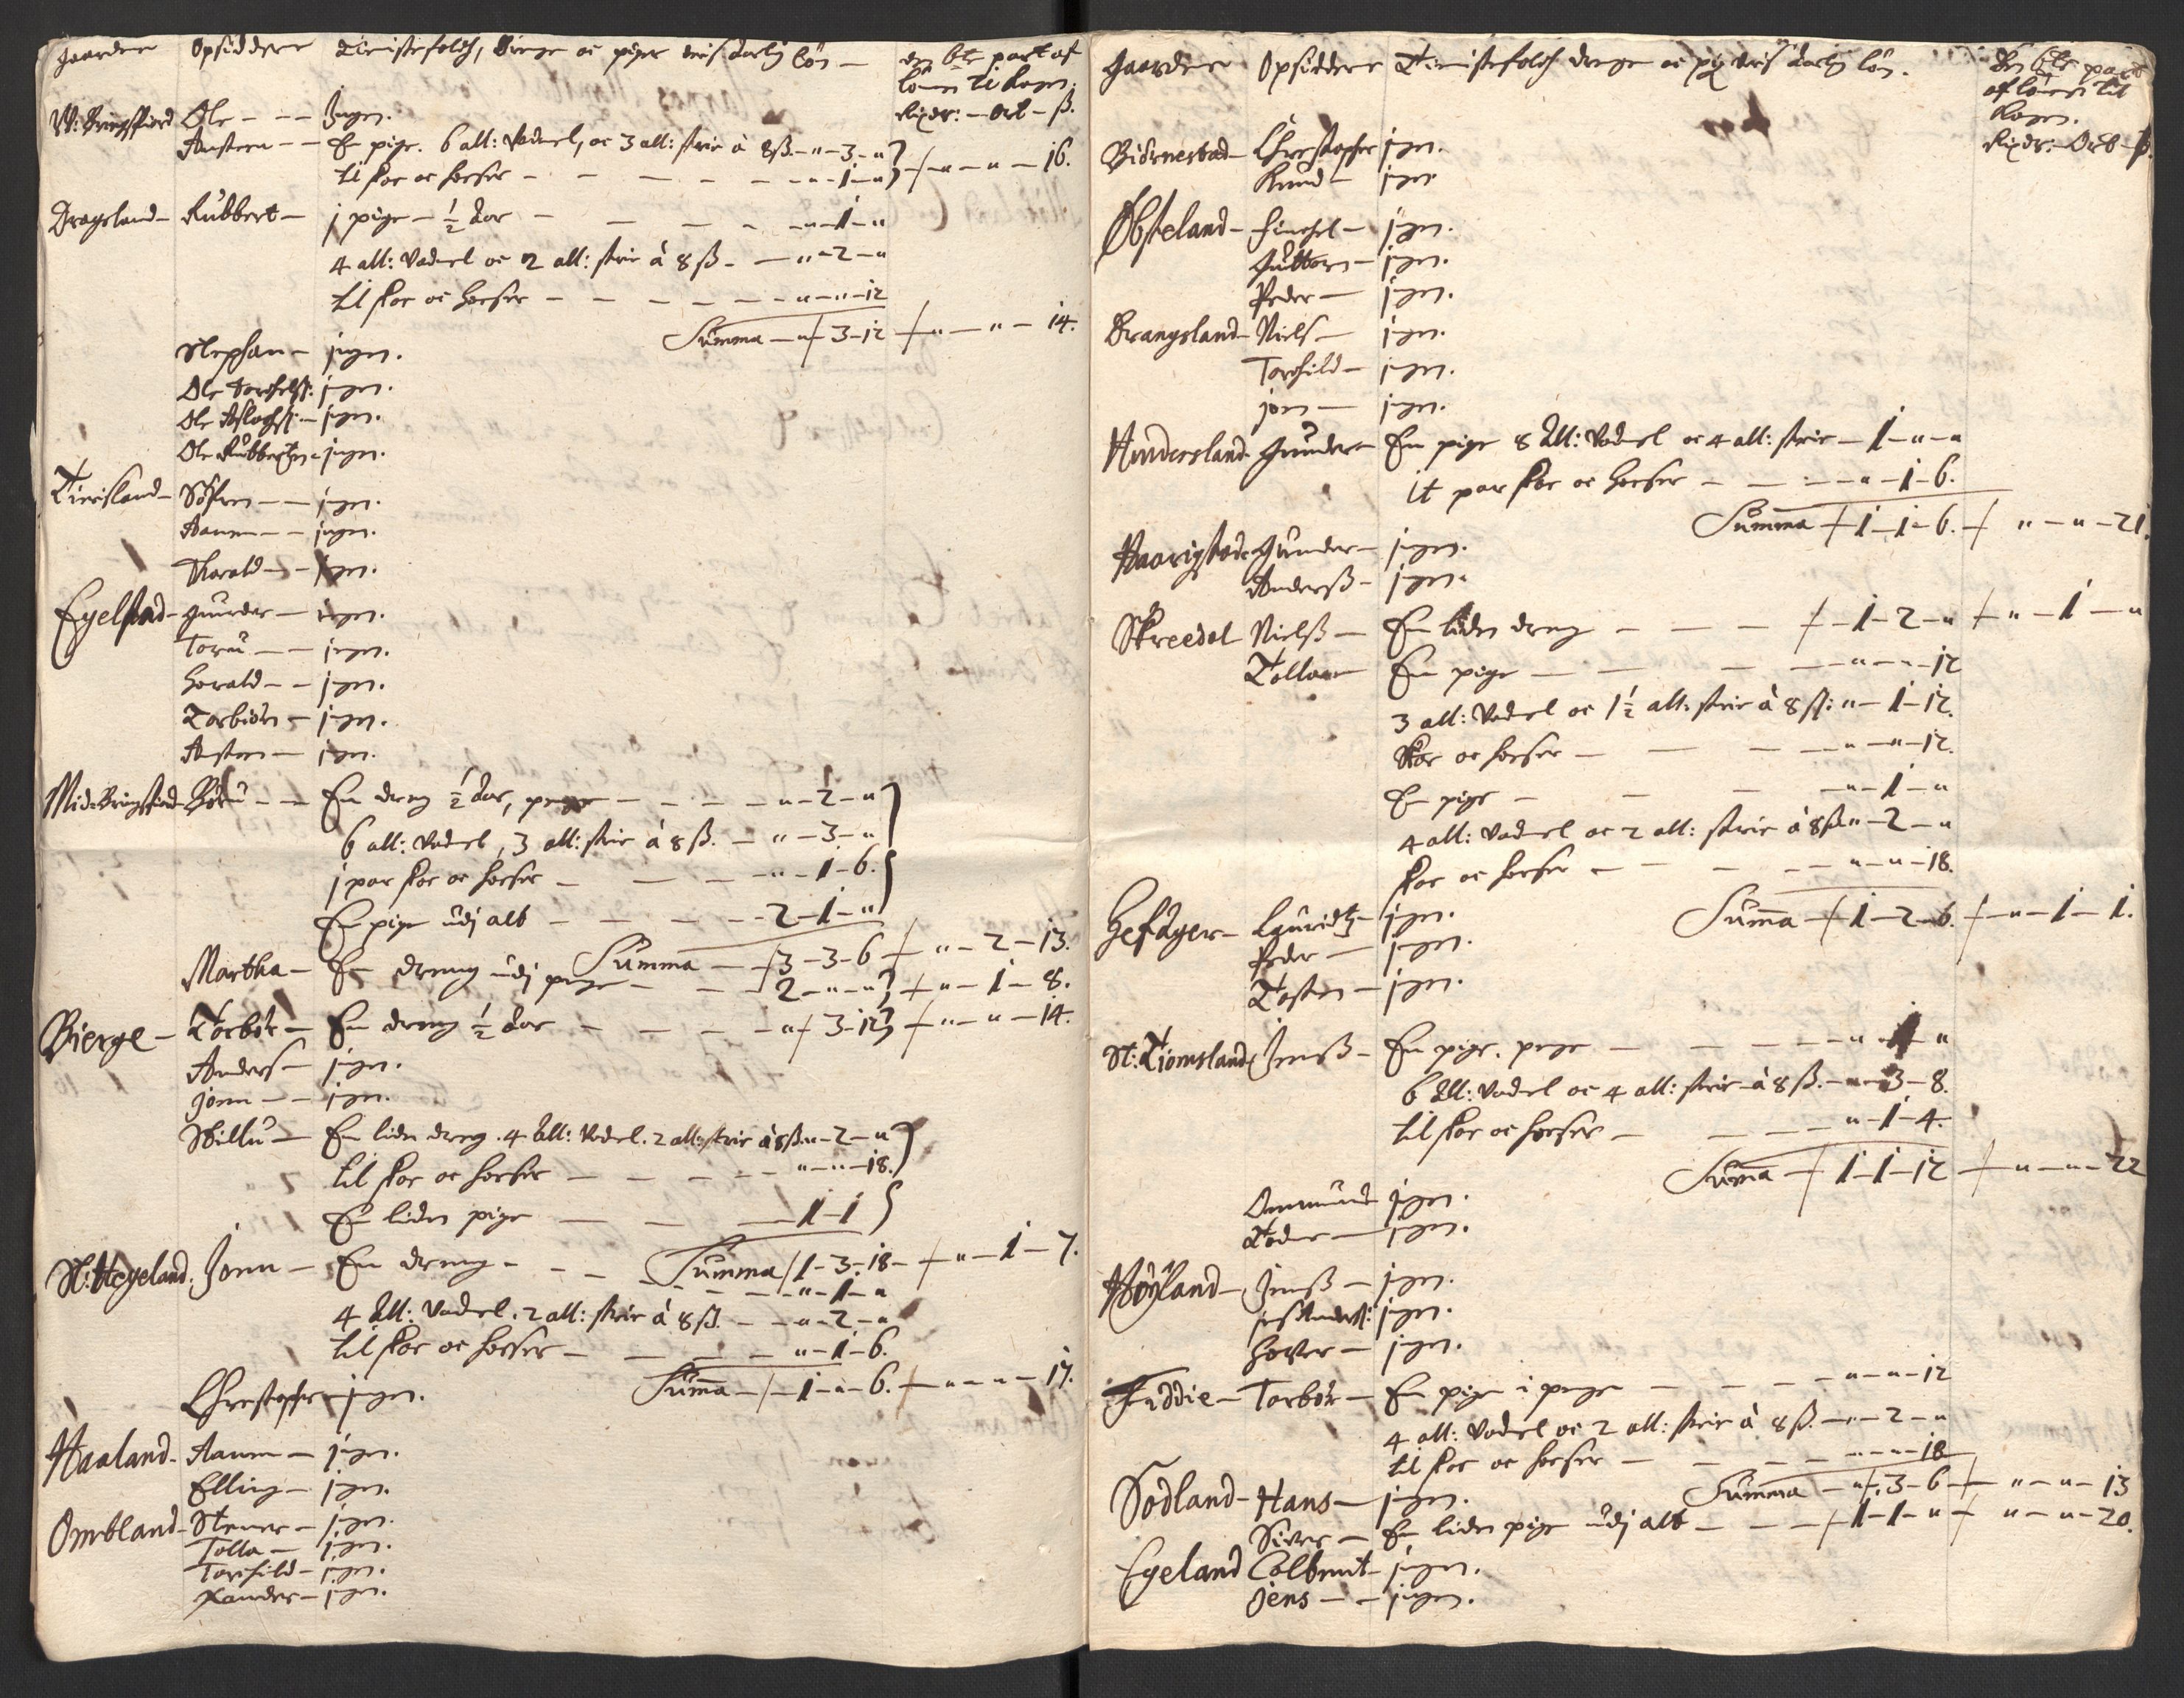 Gaarder Opsiddere Tienistefolch, Drenge oc piger deris Aarlig løn —
den 6te part af
lønen til kogn.
Rixdr: — Ort — ß.
W: Bringsfiord Ole — — Ingen.
Austen — — En pige. 6 all: Vadmel, oc 3 all: strie à 8ß. — " — 3 — "
til skoe oc hoeser — — — — " — 1 — " — " — " — 16.
Dragsland — Rubbert — j pige — ½ Aar — — — — " — 1 — "
4 all: Vadmel oc 2 all: strie à 8 ß — — " — 2 — "
til skoe oc hoeser — — — — — " — " — 12
Summa — " — 3 — 12 — " — " — 14.
Stephan — ingen.
Ole Torchelß: ingen.
Ole Aslachß: — ingen.
Ole Rubbertsen — ingen.
Tiersland — Søfren — — ingen.
Aanen — — ingen.
Harald — — ingen.
Egelstad — Gunder — ingen.
Toru — — ingen.
Harald — — ingen.
Torbiørn — ingen.
Austen — ingen.
Mid: Bringsfiord — Børu — — En dreng ½ Aar, penge — — — " — 2 — "
6 all: Vadmel, 3 all: strie à 8 ß. — " — 3 — "
j par skoe oc hoeser — — — " — 1 — 6.
En pige udj alt — — — — 2 — 1 — "
Summa — 3 — 3 — 6 — " — 2 — 13.
Martha — En dreng udj penge — — 2 — " — " — " — 1 — 8.
Bierge — Torbør — En dreng ½ Aar — — — — " — 3 — 12 — " — " — 14.
Anders — ingen.
Jonn — — ingen.
Villu — En liden dreng. 4 all: Vadmel. 2 all: strie à 8ß. " — 2 — "
til skoe oc hoeser — — — — " — " — 18.
En liden pige — — — 1 — 1
Summa 1 — 3 — 18 — " — 1 — 7.
St: Hegeland. Jonn — En dreng — — — — " — 1 — "
4 all: Vadmel. 2 all: strie à 8 ß. — — " — 2 — "
til skoe oc hoeser — — — — " — 1 — 6.
Summa — 1 — " — 6. — " — " — 17.
Christopher — ingen.
Haaland — Aanen — ingen.
Elling — ingen.
Ombland — Stener — ingen.
Tolla — ingen.
Torchild — ingen.
Xander — ingen.
Gaarder Opsiddere Tienistefolch drenge oc pig deris Aarlig løn.
Den 6te part
af lønen til
kogn.
Rixdr: — Ort — ß.
Biørnestad — Christopher ingen.
Knud — ingen
Obsteland — Finchel — ingen.
Guttorm — ingen.
Peder — ingen.
Drangsland — Niels — ingen.
Torchild — ingen.
jon — ingen.
Andersland — Gunder — En pige 8 all: Vadmel oc 4 all: strie — 1 — " — "
it par skoe oc hoeser — — — " — 1 — 6.
Summa — 1 — 1 — 6. — " — " — 21.
Haarigstad — Gunder — ingen.
Anderß — ingen.
Skreedel Nielß — En liden dreng — — — 1 — 2 — " — " — 1 — "
Tollou — En pige — — — — " — " — 12
3 all: Vadmel oc 1½ all: strie à 8 ß: " — 1 — 12.
Skoe oc hoeser — — — — " — " — 12.
En pige — — — — " — 1 — "
4 all: Vadmel oc 2 all: strie à 8 ß " — 2 — "
skoe oc hoeser — — — — " — " — 18.
Summa — 1 — 2 — 6. — " — 1 — 1.
Gefdger — Lauridtz — ingen.
Peder — ingen.
Tosten — ingen.
St: Tiomsland Jenß — En pige. penge — — — — " — 1 — "
6 all: Vadmel oc 4 all: strie à 8 ß. — " — 3 — 8.
til skoe oc hoeser — — — — " — 1 — 4.
Summa — 1 — 1 — 12 — " — " — 22
Ommund ingen.
Toder — ingen.
Høyland — Jenß — ingen.
ingen.
Hover — ingen.
Fiddie — Torbør — En pige i penge — — — — " — " — 12
4 all: Vadmel oc 2 all: strie à 8 ß. — " — 2 — "
til skoe oc hoeser — — — — " — " — 18
Summa — " — 3 — 6 — " — " — 13
Sodland — Hans — ingen.
Siver — En liden pige udj alt — — — 1 — 1 — " — " — " — 20.
Egeland Colbent — ingen.
Jens — — ingen.